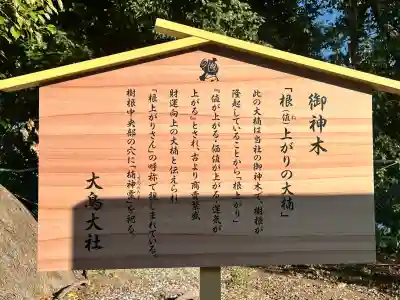 御神木
「根(値)上がりの大楠」
ね
此の大楠は当社の御神木で、樹根が
隆起していることから「根上がり」
『値が上がる・価値が上がる・運気が
上がる』とされ、古より商売繁盛、
財運向上の大楠と伝えられ
「根上がりさん」の呼称で親しまれている。
樹根中央部の穴に「楠神霊」を祀る。
大鳥大社